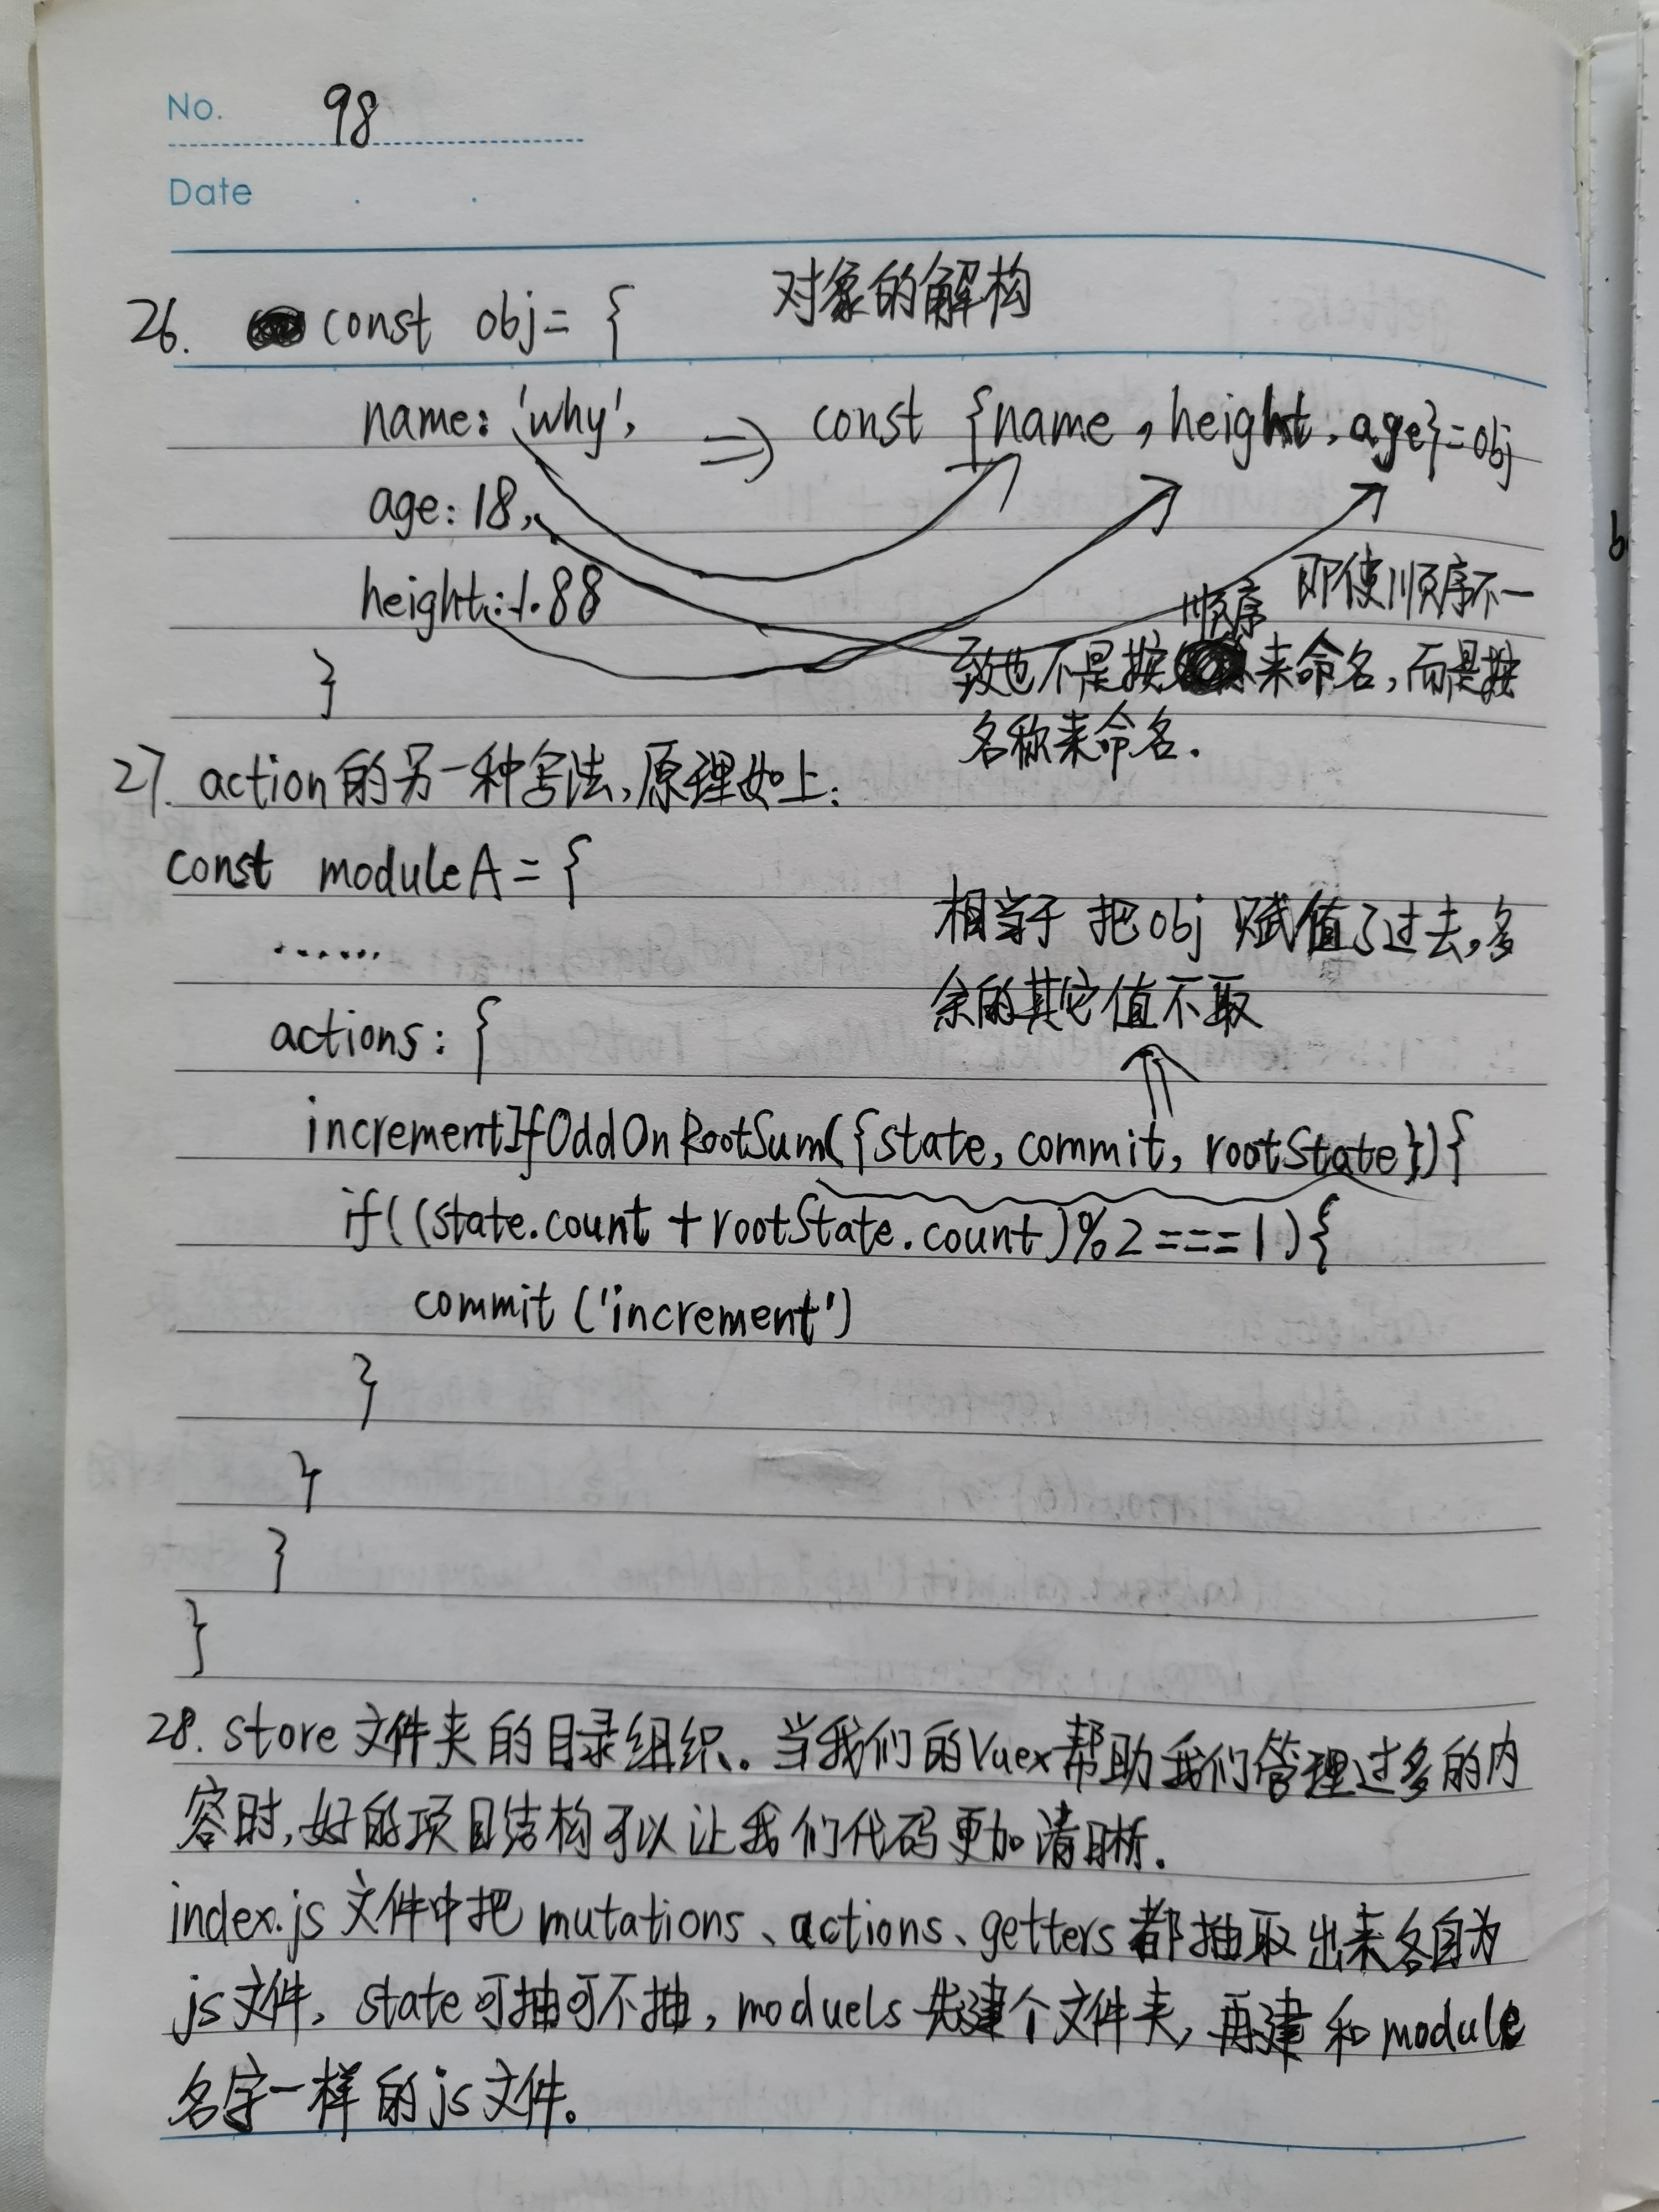 No. 98
Date
26. const obj = { 对象的解构
name: 'why', => const {name, height, age}=obj
age: 18,
height: 1.88
即使顺序不一
致也不是按顺序来命名,而是按
名称来命名.
}
27. action的另一种写法,原理如上:
const moduleA = {
......
相当于 把obj 赋值了过去,多
余的其它值不取
actions: {
incrementIfOddOnRootSum({state, commit, rootState}){
if((state.count + rootState.count)%2===1){
commit('increment')
}
}
}
}
28. store文件夹的目录组织。当我们的Vuex帮助我们管理过多的内
容时,好的项目结构可以让我们代码更加清晰.
index.js 文件中把 mutations、actions、getters 都抽取出来各自为
js文件, state可抽可不抽, moduels 先建个文件夹, 再建和module
名字一样的js文件。